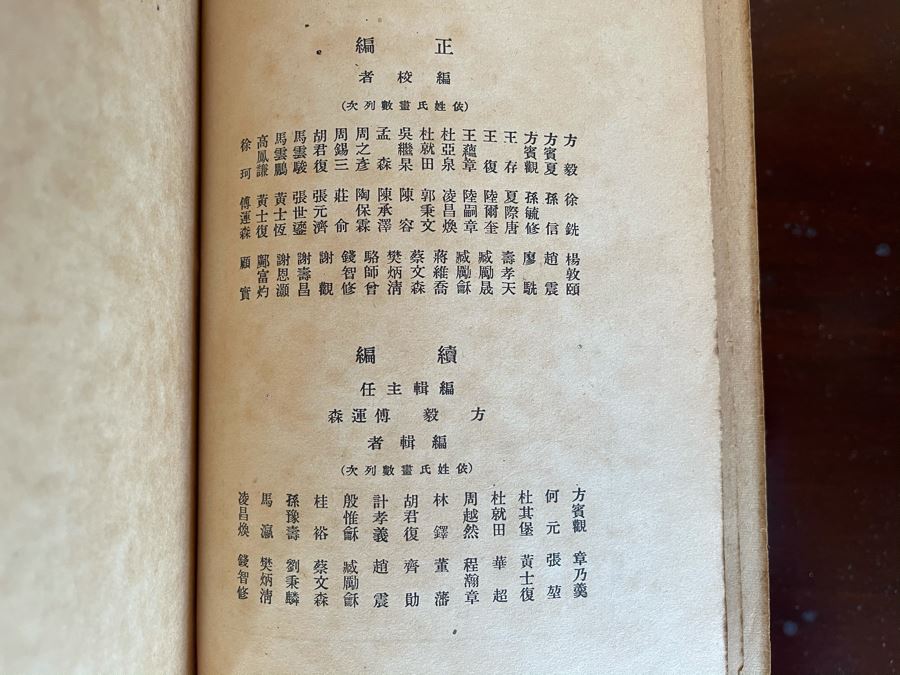 正編
編校者
(依姓氏畫數列次)
方毅 方賓夏 方賓觀 王存 王復 王蘊章 杜亞泉 杜就田 吳繼杲 孟森 周之彥 周錫三 胡君復 馬雲駿 馬雲鵬 高鳳謙 徐珂
徐銑 孫信 孫毓修 夏際唐 陸爾奎 陸嗣章 凌昌煥 郭秉文 陳容 陳承澤 陶保霖 莊俞 張元濟 張世鎏 黃士恆 黃士復 傅運森
楊敦頤 趙震 廖駪 壽孝天 臧勵晟 臧勵龢 蔣維喬 蔡文森 樊炳清 駱師曾 錢智修 謝觀 謝壽昌 謝恩灝 鄺富灼 顧實
續編
編輯主任
方毅 傅運森
編輯者
(依姓氏畫數列次)
方賓觀 何元 杜其堡 杜就田 周越然 林鐸 胡君復 計孝義 殷惟龢 桂裕 孫豫壽 馬瀛 凌昌煥
章乃羹 張堃 黃士復 華超 程瀚章 董藩 齊勛 趙震 臧勵龢 蔡文森 劉秉麟 樊炳清 錢智修